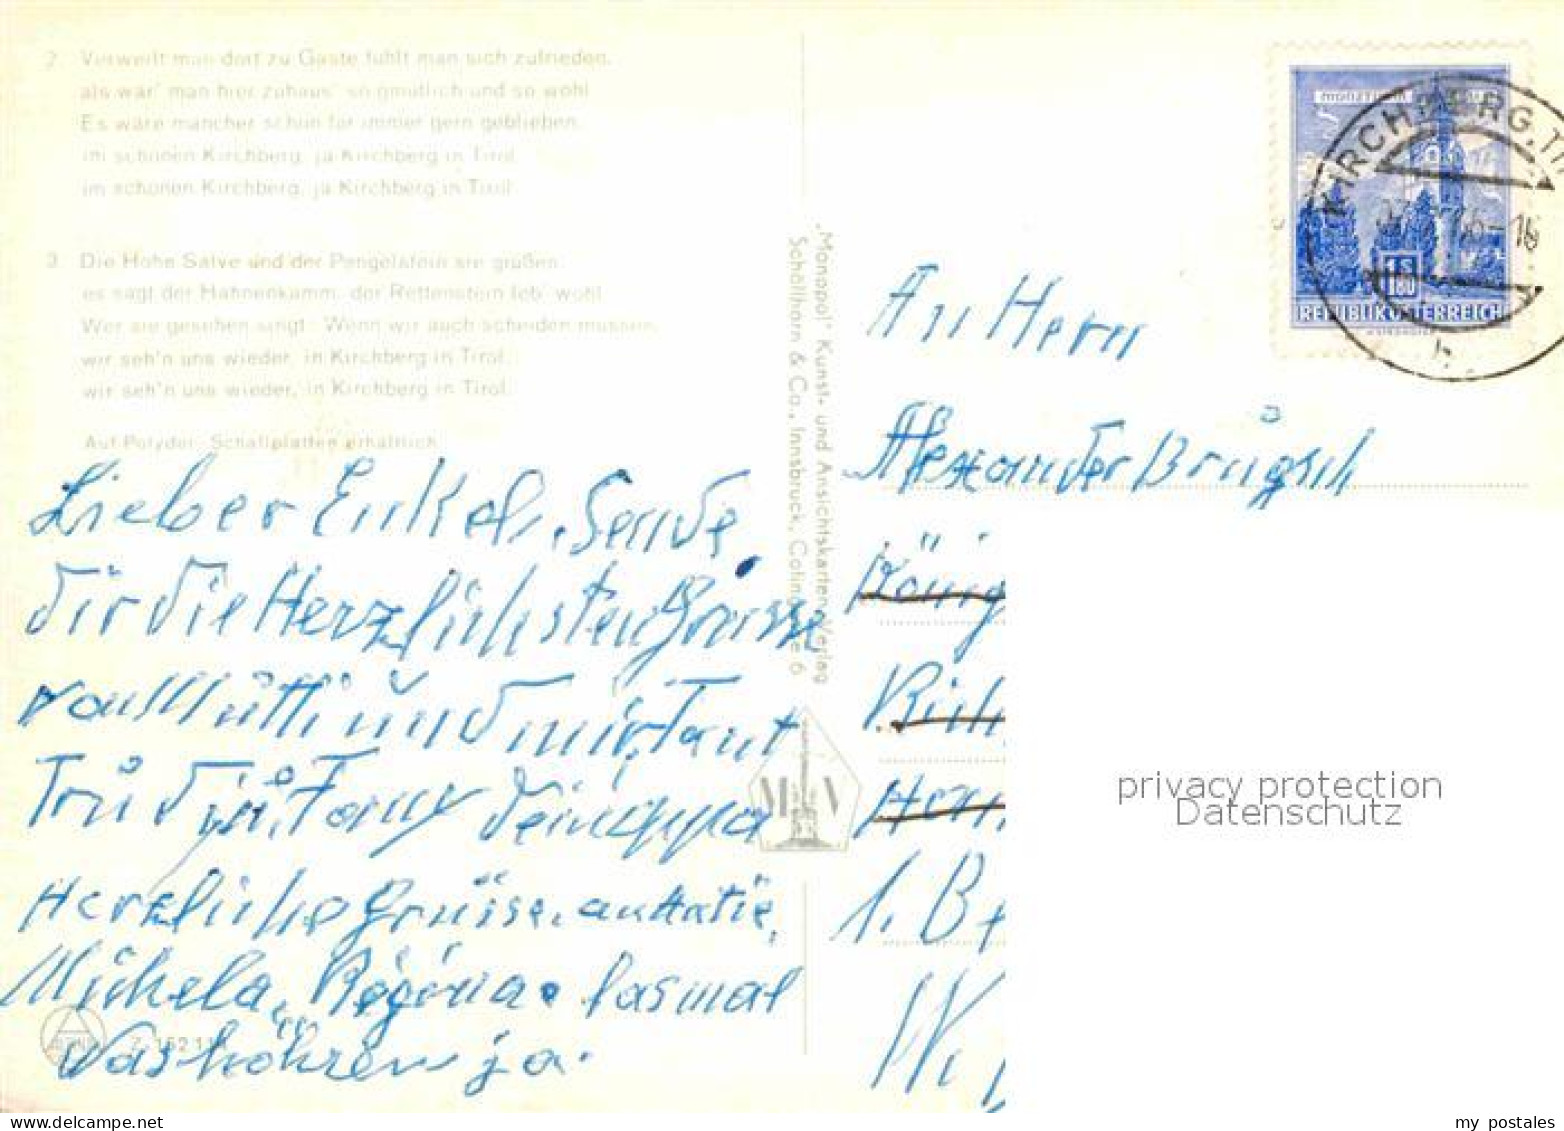 2 Verweilt man dort zu Gaste fühlt man sich zufrieden,
als wär' man hier zuhaus' so gmütlich und so wohl
Es wäre mancher schon für immer gern geblieben,
im schönen Kirchberg, ja Kirchberg in Tirol
im schönen Kirchberg, ja Kirchberg in Tirol.
3 Die Hohe Salve und der Pengelstein sie grüßen
es sagt der Hahnenkamm, der Rettenstein leb' wohl
Wer sie gesehen singt: Wenn wir auch scheiden müssen,
wir seh'n uns wieder, in Kirchberg in Tirol,
wir seh'n uns wieder, in Kirchberg in Tirol.
Auf Polydor-Schallplatten erhältlich
Lieber Enkel, Sende
dir die Herzlichsten Grüsse
von Mutti und mir, Tant
Trud Tony dein
Herzliche Grüsse. an Katie,
Michela, lasmal
was hören ja.
Z. 152 11
„Monopol" Kunst- und Ansichtskarten-Verlag
Schöllhorn & Co., Innsbruck, Coling 6
M V
KIRCHBERG, TI
REPUBLIK ÖSTERREICH
1 S 80
An Hern
Alexander Brügsch
König
1. Be
W.
privacy protection
Datenschutz
www.delcampe.net
my postales